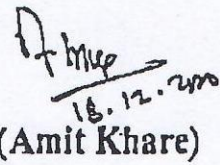 18.12.2000
(Amit Khare)